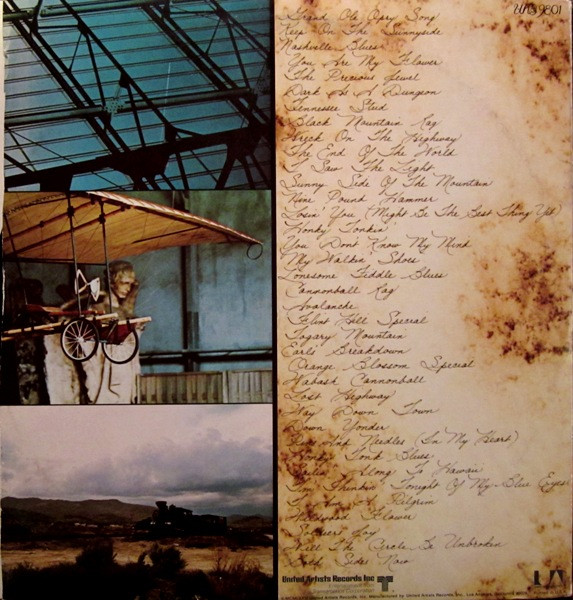 UAS 9801
Grand Ole Opry Song
Keep On The Sunnyside
Nashville Blues
You Are My Flower
The Precious Jewel
Dark As A Dungeon
Tennessee Stud
Black Mountain Rag
Wreck On The Highway
The End Of The World
I Saw The Light
Sunny Side Of The Mountain
Nine Pound Hammer
Losin' You (Might Be The Best Thing Yet)
Honky Tonkin'
You Don't Know My Mind
My Walkin' Shoes
Lonesome Fiddle Blues
Cannonball Rag
Avalanche
Flint Hill Special
Togary Mountain
Earl's Breakdown
Orange Blossom Special
Wabash Cannonball
Lost Highway
Way Down Town
Down Yonder
Pins And Needles (In My Heart)
Honky Tonk Blues
Sailin' Along To Hawaii
I'm Thinkin' Tonight Of My Blue Eyes
I Am A Pilgrim
Wildwood Flower
Soldier's Joy
Will The Circle Be Unbroken
Both Sides Now
United Artists Records Inc
UA